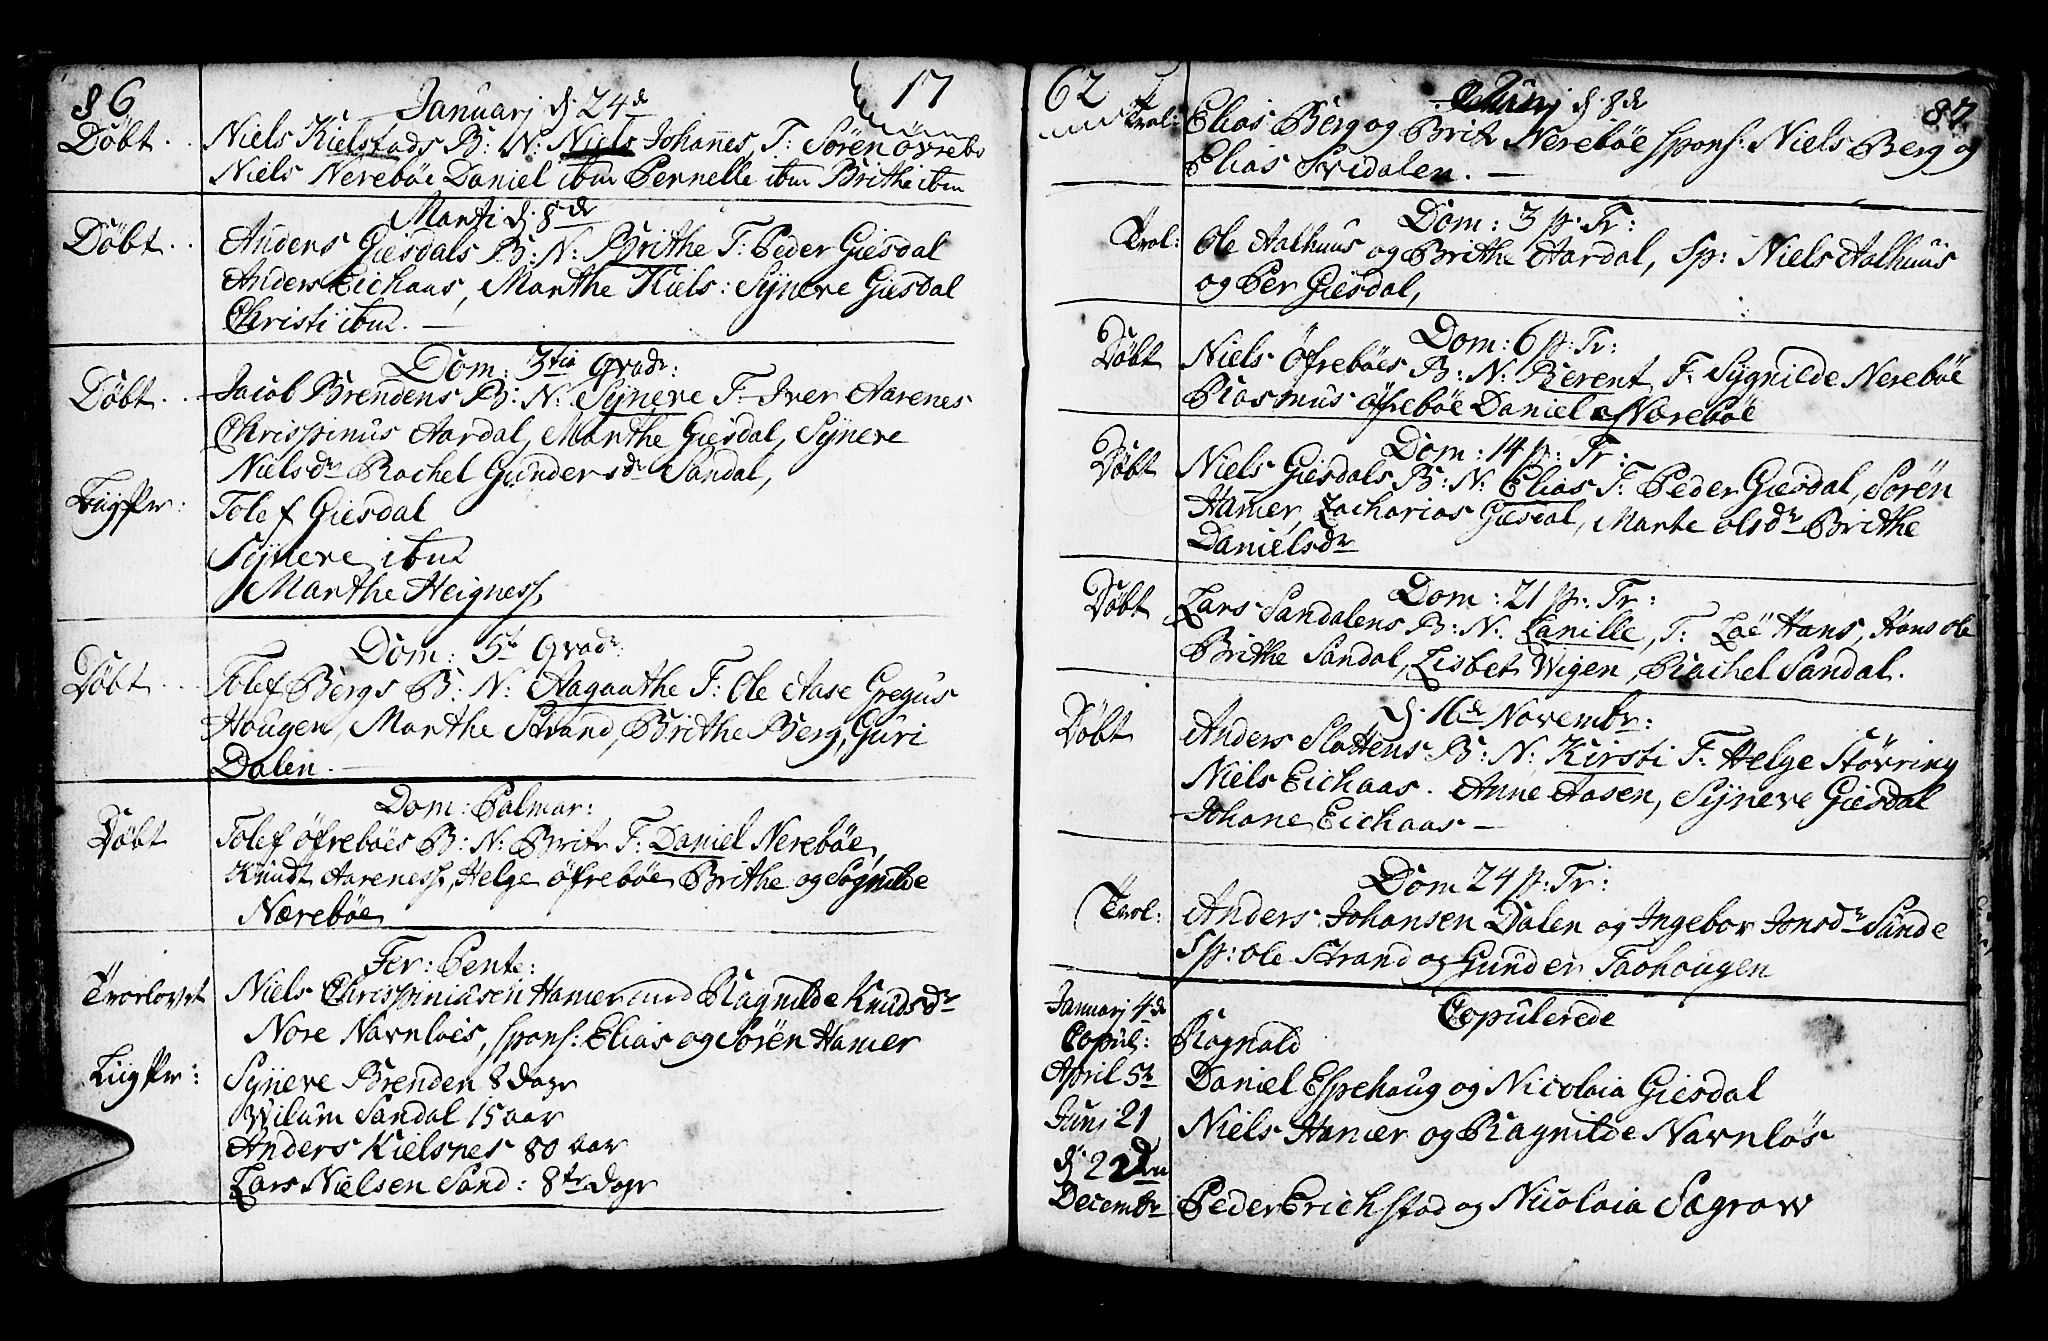 86
17
Januarj d: 24de
Døbt..
Niels Kielstads B: N: Niels Johannes, F: Søren Øvrebø
Niels Nerebøe Daniel ibm Pernelle ibm Brithe ibm
Martj d: 8de
Døbt..
Anders Giesdals B: N: Brithe F: Peder Giesdal
Anders Eichaas, Marthe Kiels: Synneve Giesdal
Christi ibm. —
Dom: 3tia Qvadr:
Døbt..
Jacob Brendens B: N: Syneve F: Iver Aarenes
Chrispinus Aardal, Marthe Giesdal, Syneve
Nielsdr Rachel Gundersdr Sandal,
Liigpr:
Tolef Giesdal
Syneve ibm
Marthe Heigness,
Dom: 5te Qvadr:
Døbt..
Tolef Bergs B: N: Aagaathe F: Ole Aase Gregus
Hougen, Marthe Strand, Brithe Berg, Guri
Dalen. —
Dom: Palmar:
Døbt
Tolef Øfrebøes B: N: Brite F: Daniel Nerebøe,
Knudt Aareness, Helge Øfrebøe Brithe og Sognilde
Nærebøe
Fer: Pente:
Trorlovet
Niels Chrispiniusen Hamer med Ragnilde Knudsdr
Nore Navnløes, spons: Elias og Søren Hamer
Liigpr:
Syneve Brenden 8 dage
Wilum Sandal 15 aar
Anders Kielsnes 80 aar
Lars Nielsen Sand: 8te dage
62
87
Junj d: 8de
Trol:
Elias Berg og Brite Nerebøe spons: Niels Berg og
Elias Svidalen. —
Dom: 3 p: Tr:
Trol:
Ole Aalhuus og Brithe Aardal, Sp: Niels Aalhuus
og Per Giesdal,
Dom: 6 p: Tr:
Døbt
Niels Øfrebøes B: N: Berent, F: Sygnilde Nerebøe
Rasmus Øfrebøe Daniel Nærebøe
Dom: 14 p: Tr:
Døbt
Niels Giesdals B: N: Elias F: Peder Giesdal, Søren
Hamer, Zacharias Giesdal, Marte Olsdr Brithe
Danielsdr
Dom: 21 p: Tr:
Døbt
Lars Sandalens B: N: Lanille, F: Hans, Hans Ole
Brithe Sandal, Lisbet Wigen, Rachel Sandal.
d: 16de Novembr:
Døbt
Anders Slottens B: N: Kirsti F: Helge Støvring
Niels Eichaas. Anne Aasen, Syneve Giesdal
Johane Eichaas —
Dom 24 p: Tr:
Trol:
Anders Johansen Dalen og Ingebor Jonsdr Sande
Sp: Ole Strand og Gunder Taohougen
Copulerede
Januarj 4de
Copul:
Ragnald
April 5te
Daniel Espehaug og Nicolaia Giesdal
Junj 21
Niels Hamer og Ragnilde Navnløs
d: 22den
Decembr
Peder Erichstad og Nicolaia Sægrow